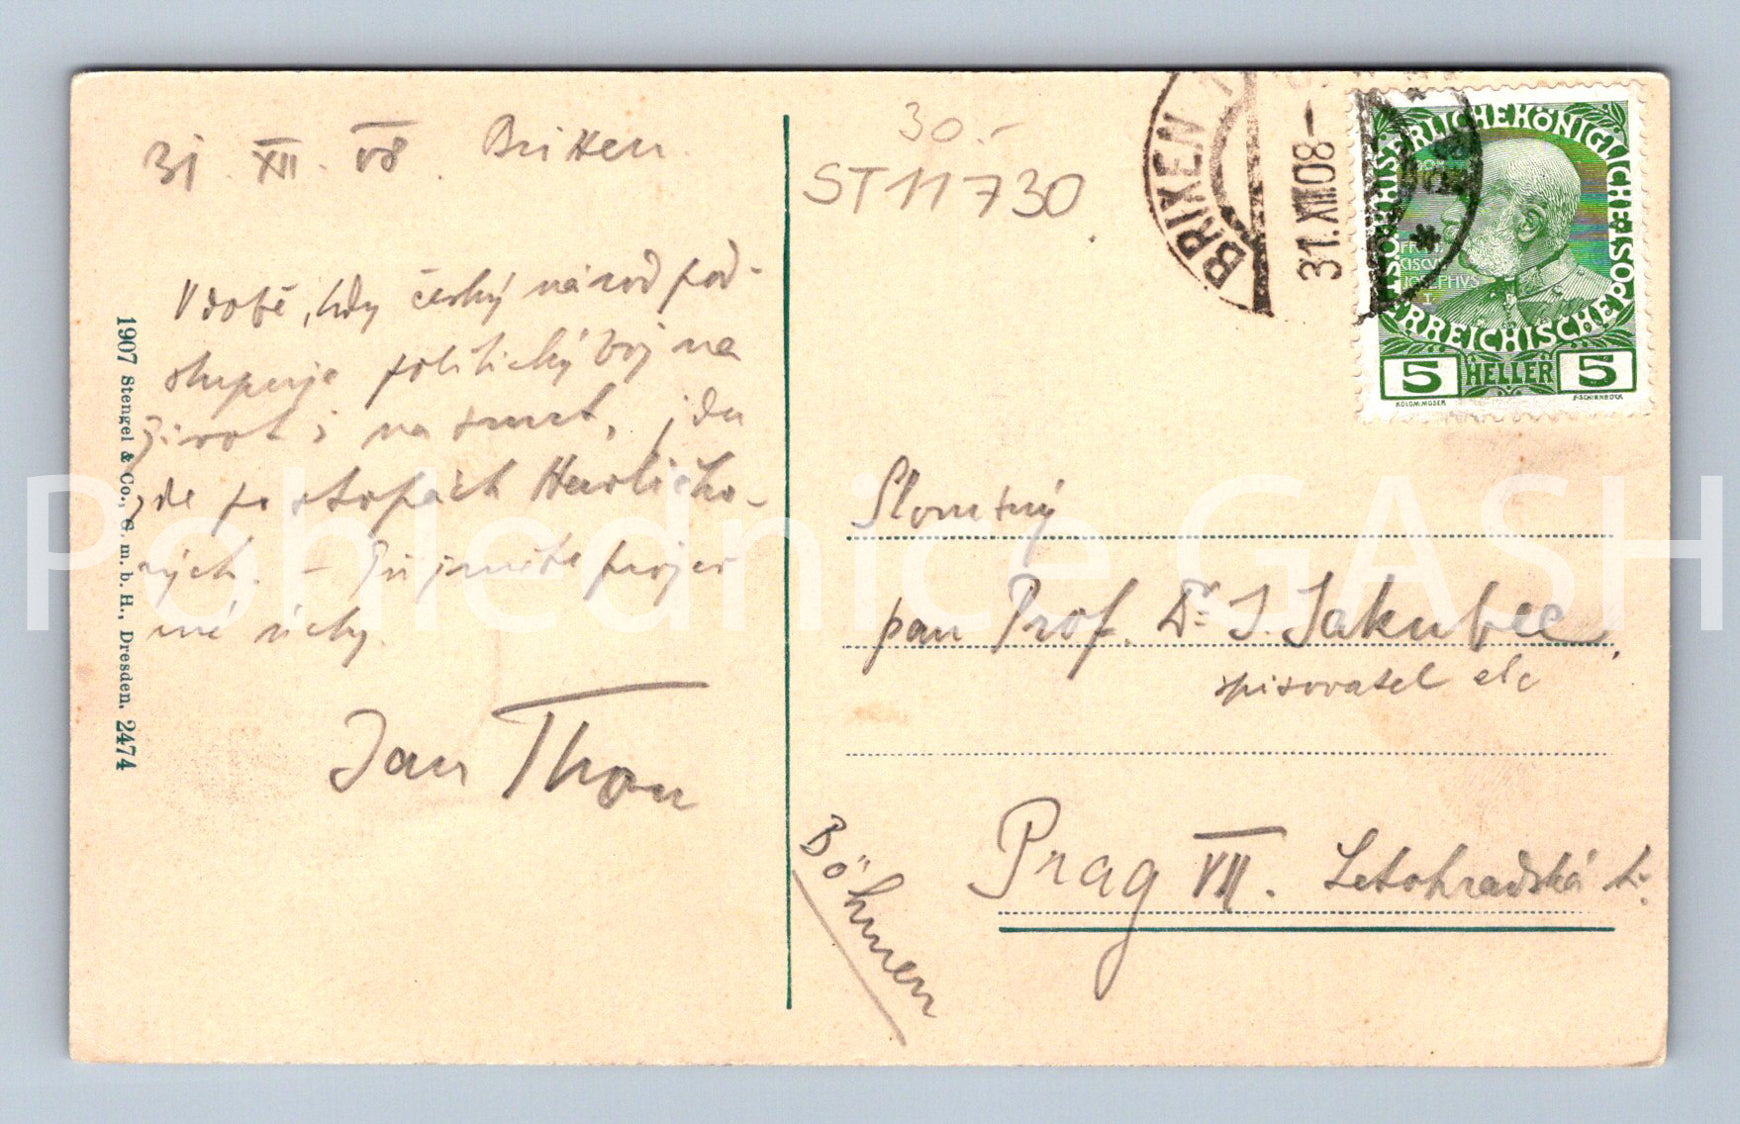 31. XII. 08. Brixen.
V době, kdy český národ pod-
stupuje politický boj na
život i na smrt, jdu
zde po stopách Havlíčko-
vých. – Přijměte projev
mé úcty.
Jan Thon
1907 Stengel & Co., G. m. b. H., Dresden. 2474
30.-
ST 11730
BRIXEN
31.XII.08-
KAISERLICHE KÖNIGLICHE ÖSTERREICHISCHE POST
FRANCISCVS JOSEPHVS I
5 HELLER 5
KOLOM.MOSER
F.SCHIRNBÖCK
Slovutný
pan Prof. Dr. J. Jakubec,
spisovatel etc
Prag VII. Letohradská tř.
Böhmen
Pohlednice GASH